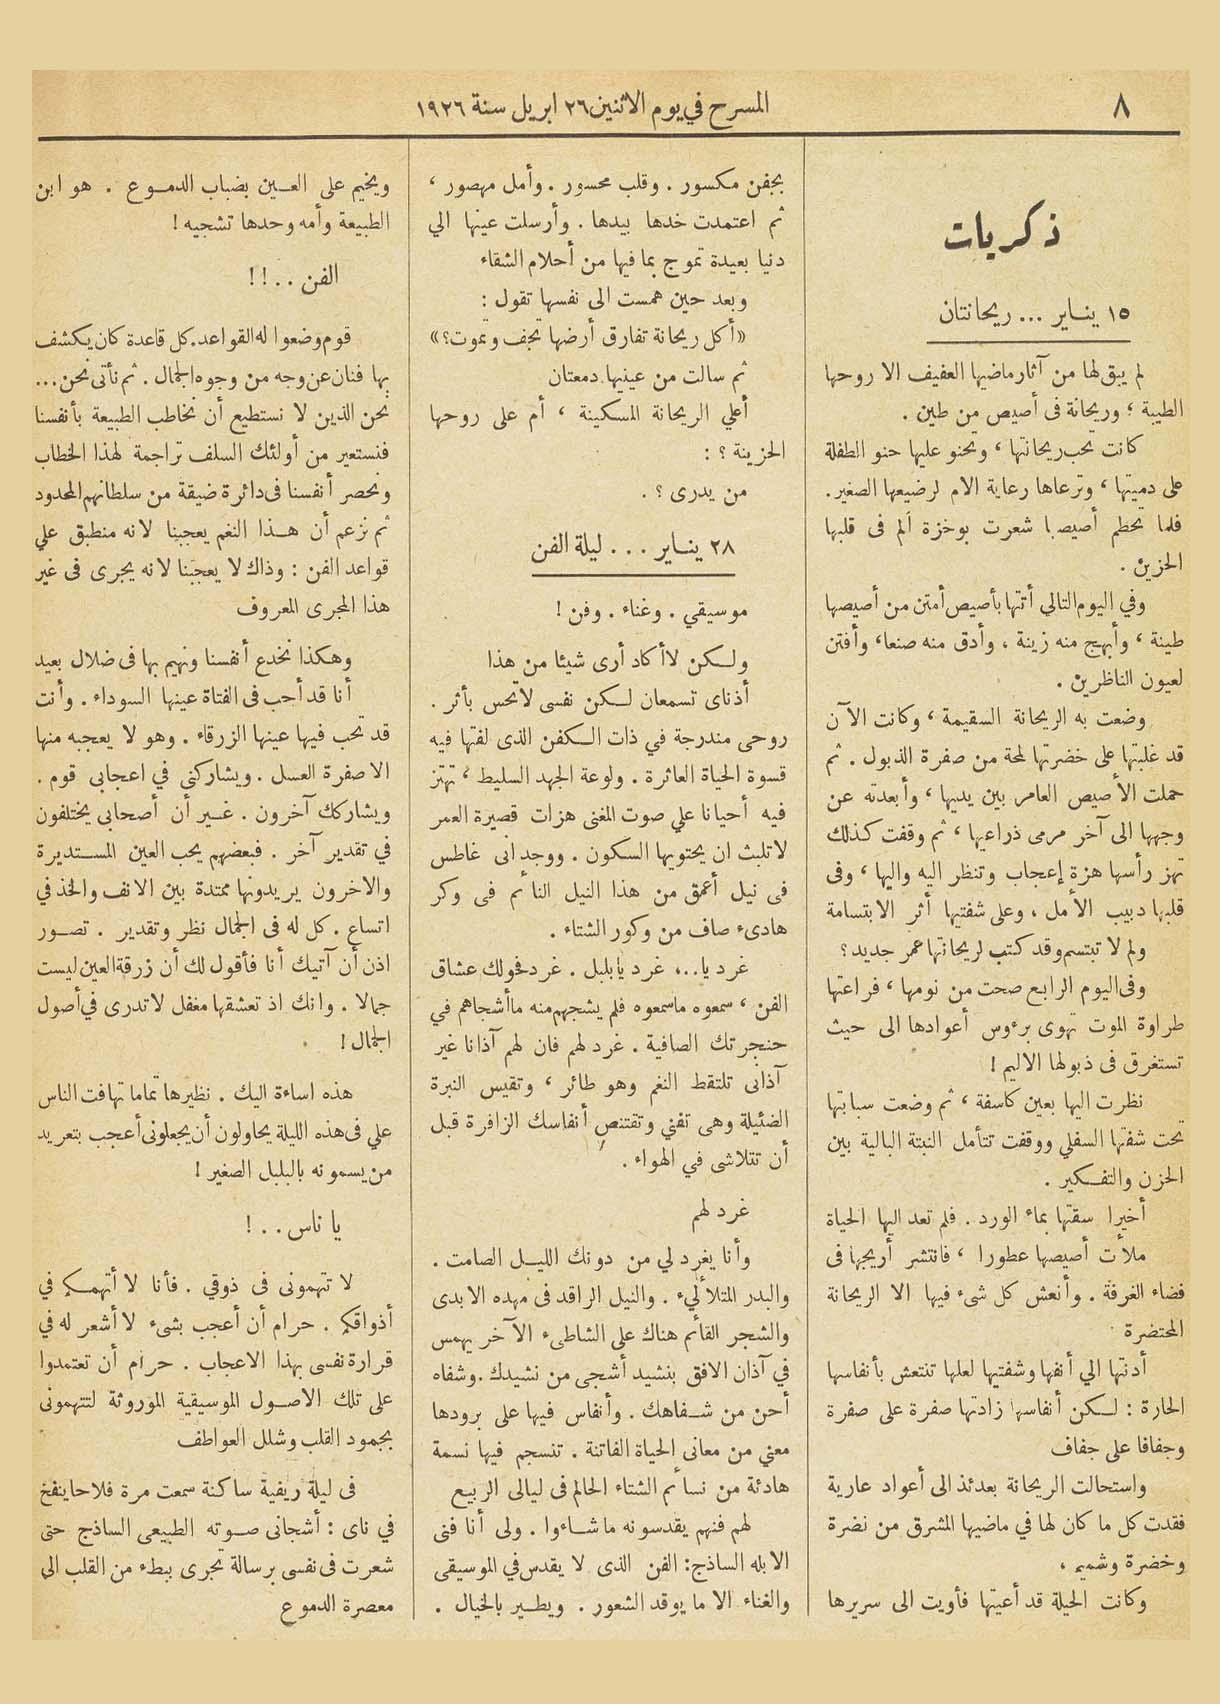 ٨
المسرح في يوم الاثنين ٢٦ ابريل سنة ١٩٢٦
ذكريات
١٥ يناير ... ريحانتان
لم يبق لها من آثار ماضيها العفيف الا روحها
الطيبة ؛ وريحانة فى أصيص من طين .
كانت تحب ريحانتها ، وتحنو عليها حنو الطفلة
على دميتها ، وترعاها رعاية الام لرضيعها الصغير.
فلما تحطم أصيصها شعرت بوخزة ألم فى قلبها
الحزين .
وفي اليوم التالي أتتها بأصيص أمتن من أصيصها
طينة ، وأبهج منه زينة ، وأدق منه صنعا، وأفتن
لعيون الناظرين .
وضعت به الريحانة السقيمة ، وكانت الآن
قد غلبتها على خضرتها لمحة من صفرة الذبول . ثم
حملت الأصيص العامر بين يديها ، وأبعدته عن
وجهها الى آخر مرمى ذراعيها ، ثم وقفت كذلك
تهز رأسها هزة إعجاب وتنظر اليه واليها ، وفى
قلبها دبيب الأمل ، وعلى شفتيها أثر الابتسامة
ولم لا تبتسم وقد كتب لريحانتها عمر جديد ؟
وفى اليوم الرابع صحت من نومها ، فراعتها
طراوة الموت تهوى برءوس أعوادها الى حيث
تستغرق فى ذبولها الاليم !
نظرت اليها بعين كاسفة ، ثم وضعت سبابتها
تحت شفتها السفلي ووقفت تتأمل النبتة البالية بين
الحزن والتفكير .
أخيرا سقتها بماء الورد . فلم تعد اليها الحياة
ملأت أصيصها عطورا ، فانتشر أريجها فى
فضاء الغرفة . وأنعش كل شىء فيها الا الريحانة
المحتضرة
أدنتها الي أنفها وشفتيها لعلها تنتعش بأنفاسها
الحارة : لكن أنفاسها زادتها صفرة على صفرة
وجفافا على جفاف
واستحالت الريحانة بعدئذ الى أعواد عارية
فقدت كل ما كان لها في ماضيها المشرق من نضرة
وخضرة وشميم .
وكانت الحيلة قد أعيتها فأويت الى سريرها
بجفن مكسور . وقلب محسور . وأمل مهصور ،
ثم اعتمدت خدها بيدها . وأرسلت عينها الي
دنيا بعيدة تموج بما فيها من أحلام الشقاء
وبعد حين همست الى نفسها تقول :
«أكل ريحانة تفارق أرضها تجف وتموت؟»
ثم سالت من عينيها دمعتان
أعلي الريحانة المسكينة ، أم على روحها
الحزينة ؟ :
من يدرى ؟ .
٢٨ يناير ... ليلة الفن
موسيقي . وغناء . وفن !
ولكن لا أكاد أرى شيئا من هذا
أذناى تسمعان لكن نفسى لا تحس بأثر .
روحى مندرجة في ذات الكفن الذى لفتها فيه
قسوة الحياة العاثرة . ولوعة الجهد السليط ، تهتز
فيه أحيانا علي صوت المغنى هزات قصيرة العمر
لا تلبث ان يحتويها السكون . ووجدانى غاطس
فى نيل أعمق من هذا النيل النائم فى وكر
هادىء صاف من وكور الشتاء .
غرد يا ..، غرد يا بلبل . غرد فحولك عشاق
الفن ، سمعوه ما سمعوه فلم يشجهم منه ما أشجاهم في
حنجرتك الصافية . غرد لهم فان لهم آذانا غير
آذانى تلتقط النغم وهو طائر ، وتقيس النبرة
الضئيلة وهى تفني وتقتنص أنفاسك الزافرة قبل
أن تتلاشى في الهواء .
غرد لهم
وأنا يغرد لي من دونك الليل الصامت .
والبدر المتلألىء . والنيل الراقد فى مهده الابدى
والشجر القائم هناك على الشاطىء الآخر يهمس
في آذان الافق بنشيد أشجى من نشيدك . وشفاه
أحن من شفاهك . وأنفاس فيها على برودها
معني من معانى الحياة الفاتنة . تنسجم فيها نسمة
هادئة من نسائم الشتاء الحالم فى ليالى الربيع
لهم فنهم يقدسونه ما شاءوا . ولى أنا فنى
الابله الساذج : الفن الذى لا يقدس في الموسيقى
والغناء الا ما يوقد الشعور . ويطير بالخيال .
ويخيم على العين بضباب الدموع . هو ابن
الطبيعة وأمه وحدها تشجيه !
الفن .. !!
قوم وضعوا له القواعد . كل قاعدة كان يكشف
بها فنان عن وجه من وجوه الجمال . ثم نأتى نحن ...
نحن الذين لا نستطيع أن نخاطب الطبيعة بأنفسنا
فنستعير من أولئك السلف تراجمة لهذا الخطاب
ونحصر أنفسنا فى دائرة ضيقة من سلطانهم المحدود
ثم نزعم أن هذا النغم يعجبنا لانه منطبق علي
قواعد الفن : وذاك لا يعجبنا لانه يجرى فى غير
هذا المجرى المعروف
وهكذا نخدع أنفسنا ونهيم بها فى ضلال بعيد
أنا قد أحب فى الفتاة عينها السوداء . وأنت
قد تحب فيها عينها الزرقاء . وهو لا يعجبه منها
الا صفرة العسل . ويشاركني في اعجابى قوم .
ويشاركك آخرون . غير أن أصحابى يختلفون
في تقدير آخر . فبعضهم يحب العين المستديرة
والاخرون يريدونها ممتدة بين الانف والخد في
اتساع . كل له فى الجمال نظر وتقدير . تصور
اذن أن آتيك أنا فأقول لك أن زرقة العين ليست
جمالا . وانك اذ تعشقها مغفل لا تدرى في أصول
الجمال !
هذه اساءة اليك . نظيرها تماما تهافت الناس
علي فى هذه الليلة يحاولون أن يجعلونى أعجب بتغريد
من يسمونه بالبلبل الصغير !
يا ناس .. !
لا تتهمونى فى ذوقي . فأنا لا أتهمكم في
أذواقكم . حرام أن أعجب بشىء لا أشعر له في
قرارة نفسى بهذا الاعجاب . حرام أن تعتمدوا
على تلك الاصول الموسيقية الموروثة لتتهمونى
بجمود القلب وشلل العواطف
فى ليلة ريفية ساكنة سمعت مرة فلاحا ينفخ
في ناى : أشجانى صوته الطبيعى الساذج حتى
شعرت فى نفسى برسالة تجرى ببطء من القلب الى
معصرة الدموع